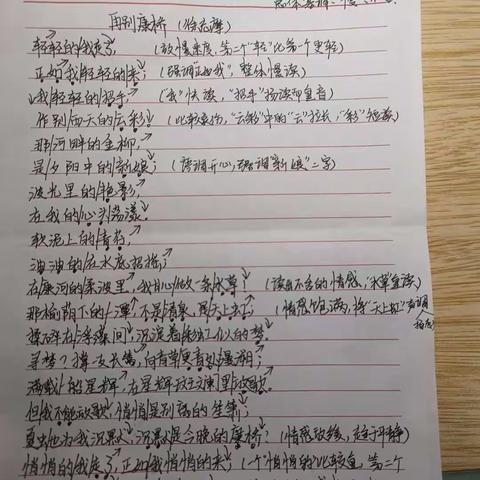 再别康桥 (徐志摩)
轻轻的我走了, (放慢速度, 第二个"轻"比第一个更轻)
正如我轻轻的来; (强调"正如我", 整体慢读)
我轻轻的招手, ("我"快读, "招手"扬读即重音)
作别西天的云彩 (比较柔扬, "云彩"中的"云"拉长, "彩"短读)
那河畔的金柳,
是夕阳中的新娘; (语调开心, 强调"新娘"二字)
波光里的艳影,
在我的心头荡漾。
软泥上的青荇,
油油的在水底招摇;
在康河的柔波里, 我甘心做一条水草! (读出不舍的情感, "水草"重读)
那榆荫下的一潭, 不是清泉, 是天上虹; (情感饱满, 将"天上虹"
揉碎在浮藻间, 沉淀着彩虹似的梦。
寻梦? 撑一支长篙, 向青草更青处漫溯;
满载一船星辉, 在星辉斑斓里放歌。
但我不能放歌, 悄悄是别离的笙箫;
夏虫也为我沉默, 沉默是今晚的康桥! (情感放缓, 趋于平静)
悄悄的我走了, 正如我悄悄的来; (一个"悄悄的"比较重, 第二个